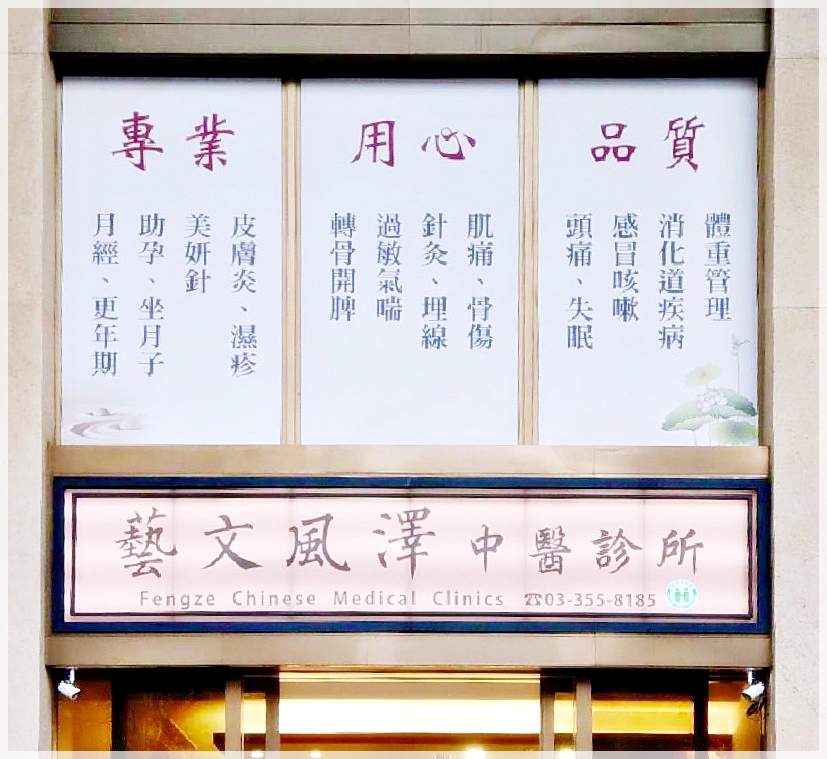 專業
皮膚炎、濕疹
美妍針
助孕、坐月子
月經、更年期
用心
肌痛、骨傷
針灸、埋線
過敏氣喘
轉骨開脾
品質
體重管理
消化道疾病
感冒咳嗽
頭痛、失眠
藝文風澤中醫診所
Fengze Chinese Medical Clinics ☎03-355-8185